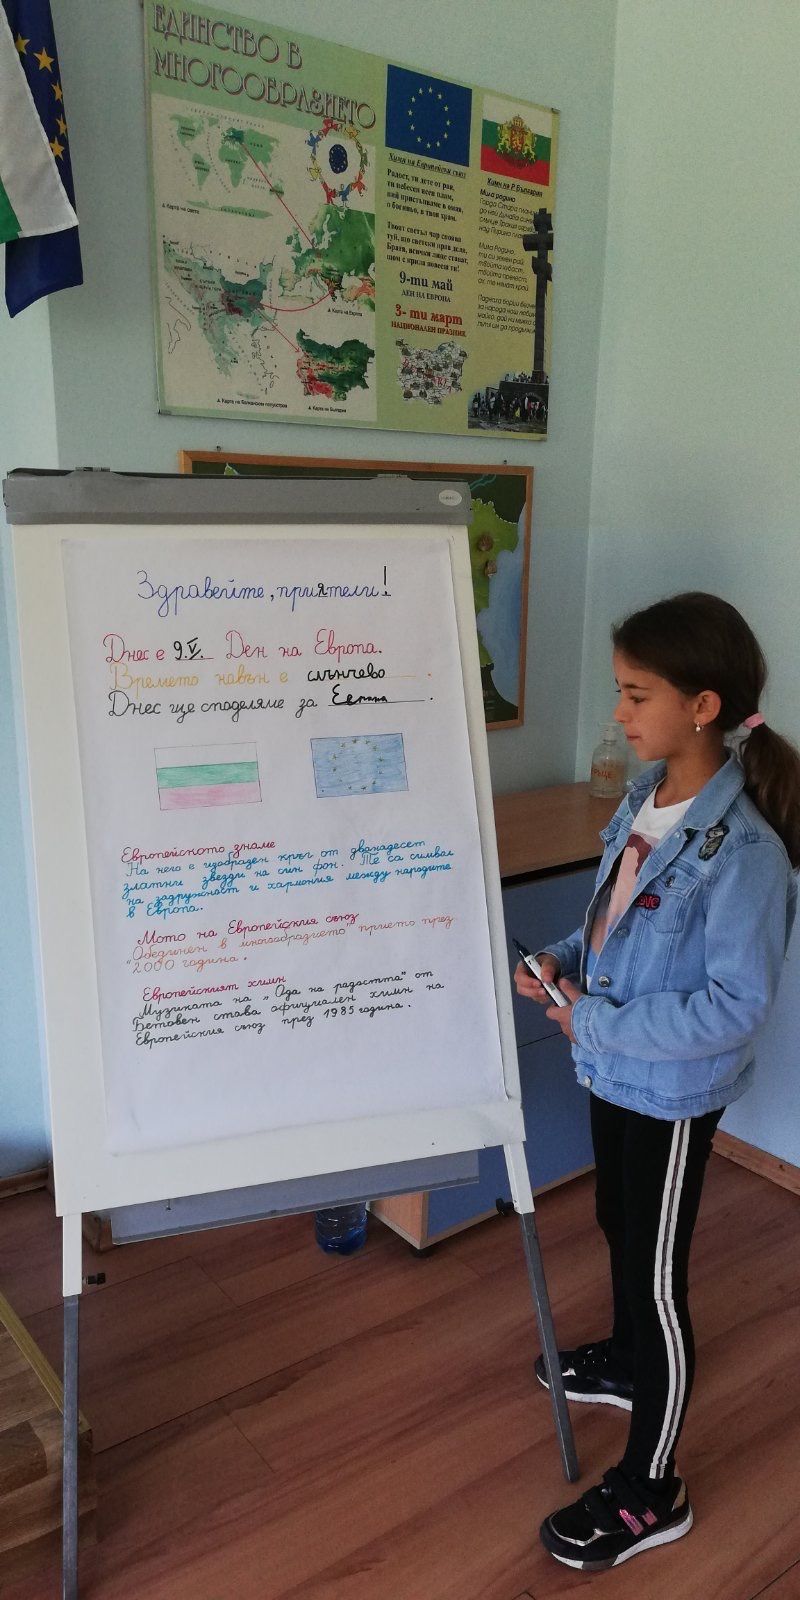 ЕДИНСТВО В
МНОГООБРАЗИЕТО
Химн на Европейския съюз
Радост, ти дете от рая,
ти небесен весел плам,
ний пристъпваме в омая,
о богиньо, в твоя храм.
Твоят светъл чар споява
туй, що светски нрав дели,
Братя, всички люде стават,
щом с крила повееш ти!
9-ти май
ДЕН НА ЕВРОПА
3- ти март
НАЦИОНАЛЕН ПРАЗНИК
Химн на Р. България
Мила родино
Горда Стара планина
до ней Дунава синей
слънце Тракия
над Пирина
Мила Родино,
ти си земен рай
твойта хубост,
твойта прелест,
ах, те нямат край.
Карта на света
Карта на Европа
Карта на Балканския полуостров
Карта на България
Здравейте, приятели!
Днес е 9.V. Ден на Европа.
Времето навън е слънчево.
Днес ще споделяме за .
Европейското знаме
На него е изобразен кръг от дванадесет
златни звезди на син фон. Те са символ
на задружност и хармония между народите
в Европа.
Мото на Европейския съюз
"Обединен в многообразието" прието през
2000 година.
Европейският химн
Музиката на „Ода на радостта" от
Бетовен става официален химн на
Европейския съюз през 1985 година.